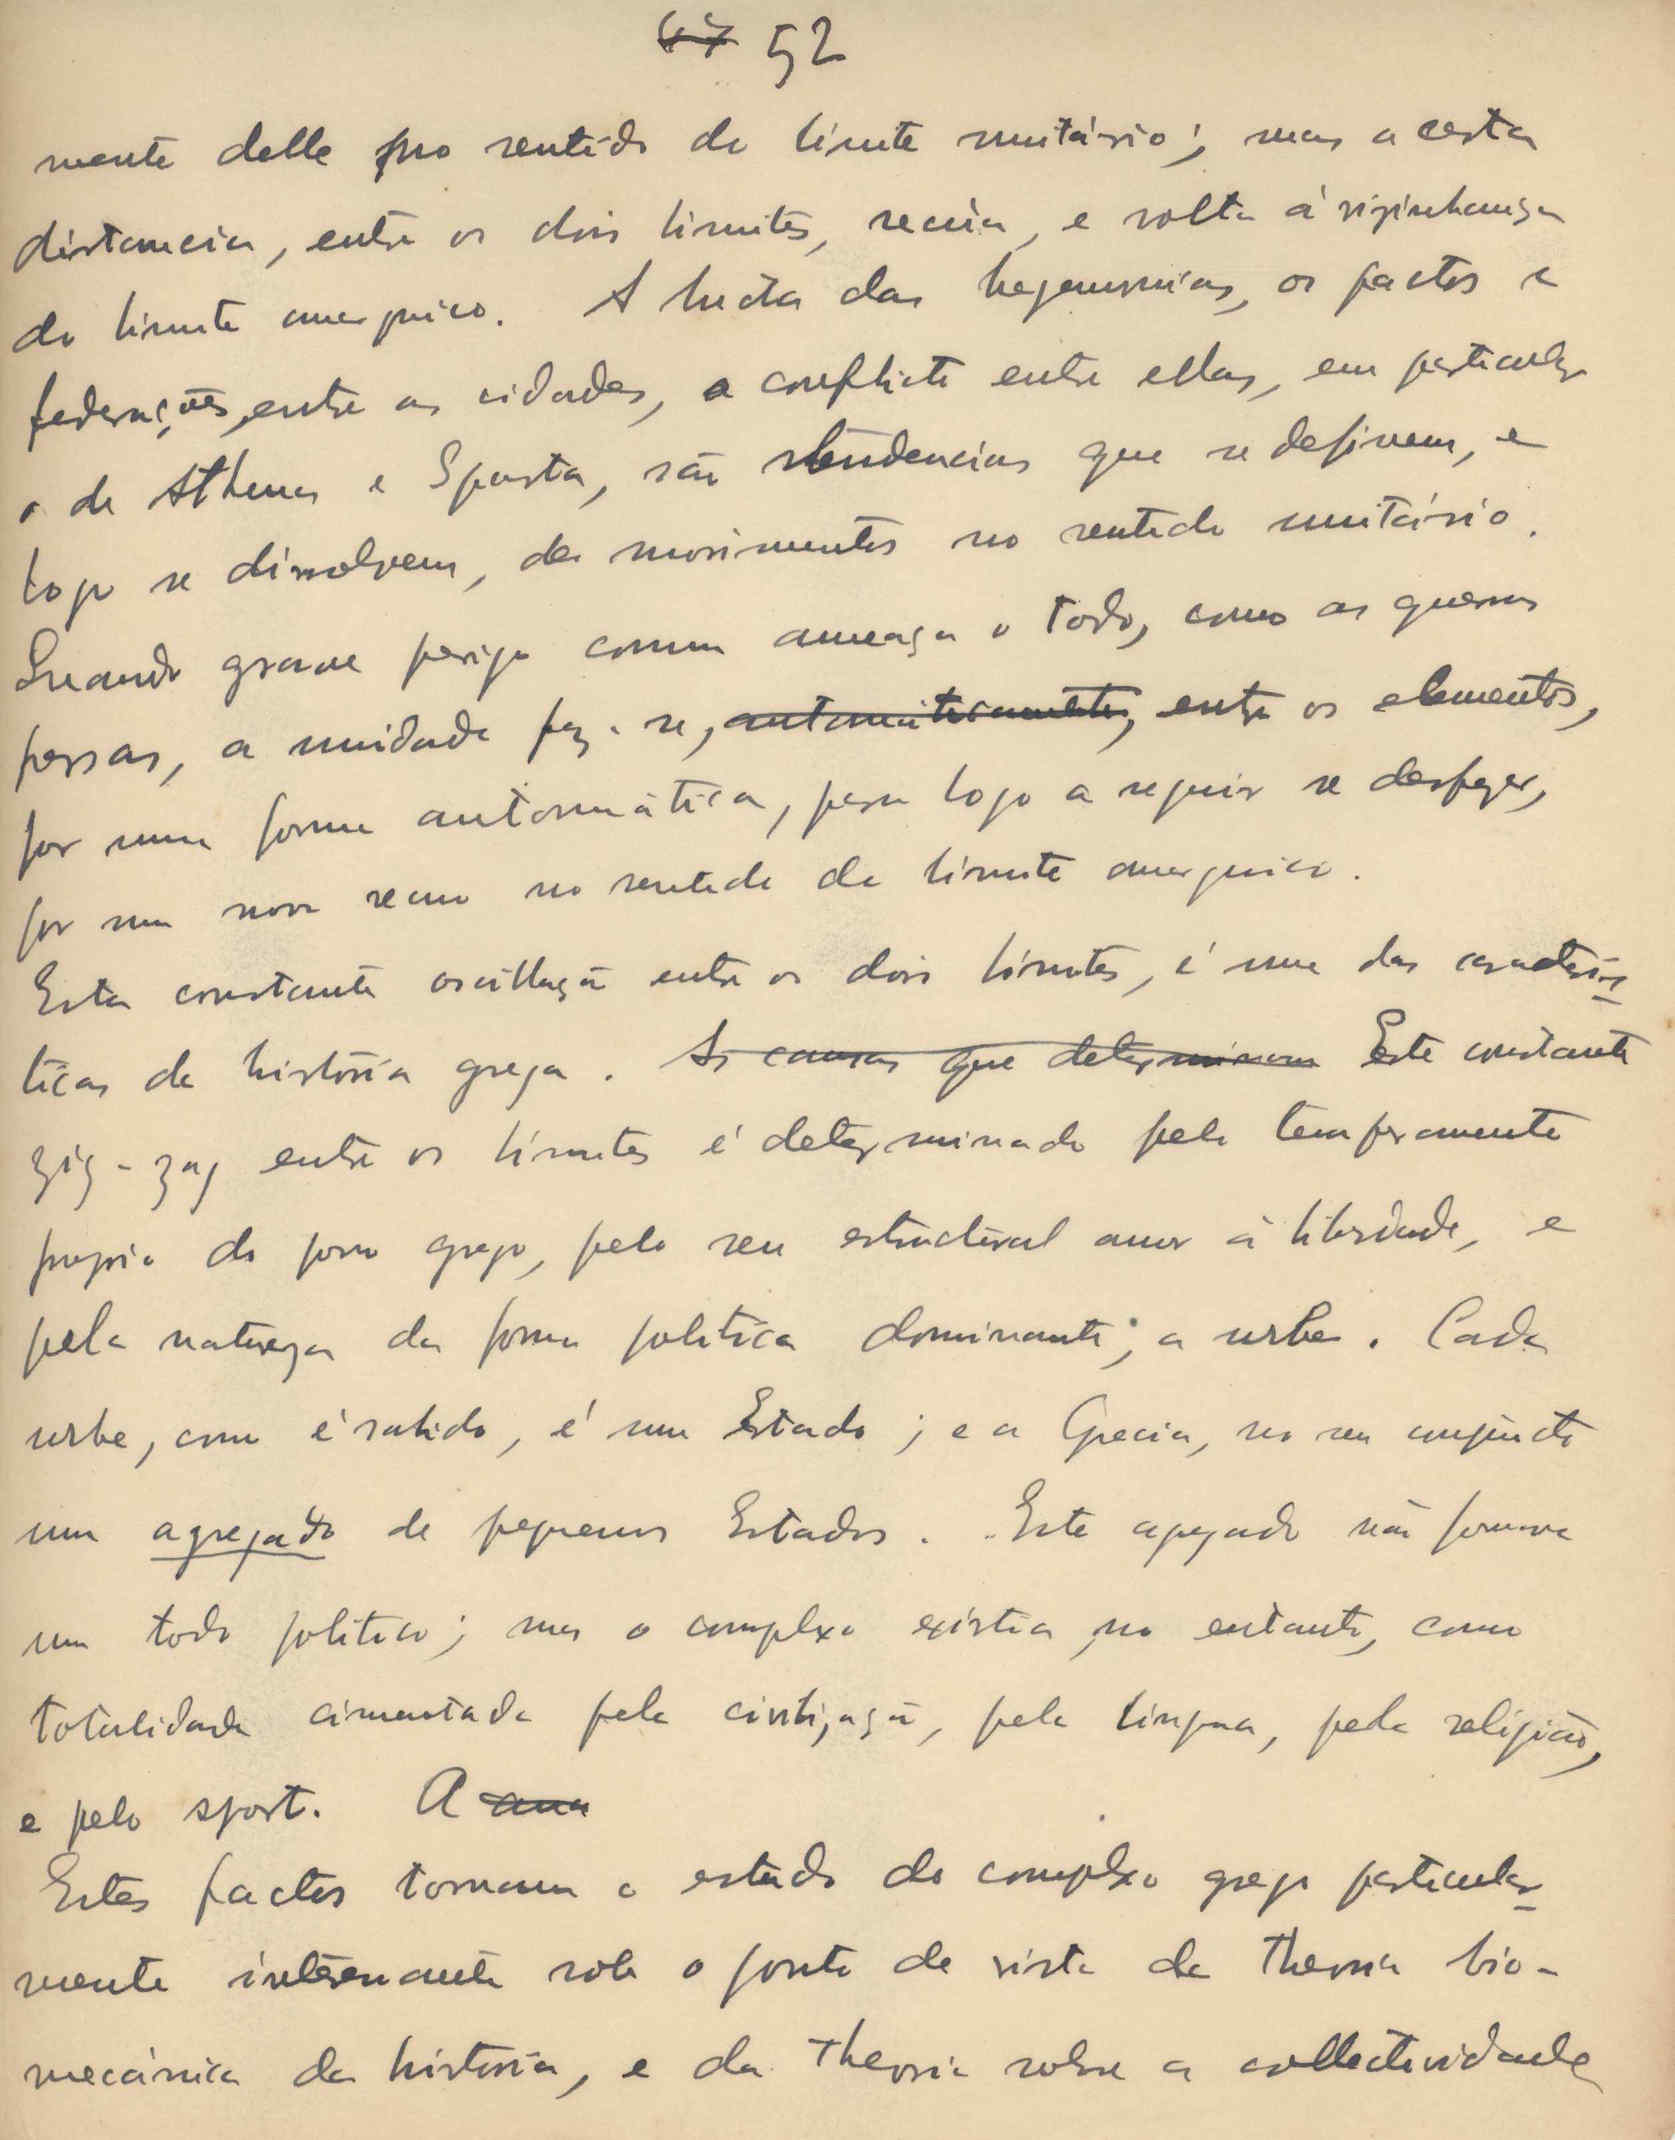 67 52
mente delle no sentido do limite unitário; mas a certa
distancia, entre os dois limites, recúa, e volta á vizinhança
do limite anarquico. A lucta das hegemonias, os pactos e
federações, entre as cidades, o conflicto entre ellas, em particular
o de Athenas e Sparta, são tendencias que se definem, e
logo se dissolvem, de movimentos no sentido unitário.
Quando grave perigo comum ameaça o todo, como as guerras
persas, a unidade fez-se, automáticamente, entre os elementos,
por uma forma automática, para logo a seguir se desfazer,
por um novo recuo no sentido do limite anarquico.
Esta constante oscillação entre os dois limites, é uma das caracterís-
ticas da história grega. As causas que determinam Este constante
zig-zag entre os limites é determinado pelo temperamento
proprio do povo grego, pelo seu estructural amor á liberdade, e
pela natureza da forma politica dominante; a urbe. Cada
urbe, como é sabido, é um Estado; e a Grecia, no seu conjuncto
um agregado de pequenos Estados. Este agregado não formava
um todo politico; mas o complexo existia, no entanto, como
totalidade cimentada pela civilização, pela lingua, pela religião,
e pelo sport. A ama
Estes factos tornam o estudo do complexo grego particular-
mente interessante sob o ponto de vista da theoria bio-
mecánica da história, e da theoria sobre a collectividade